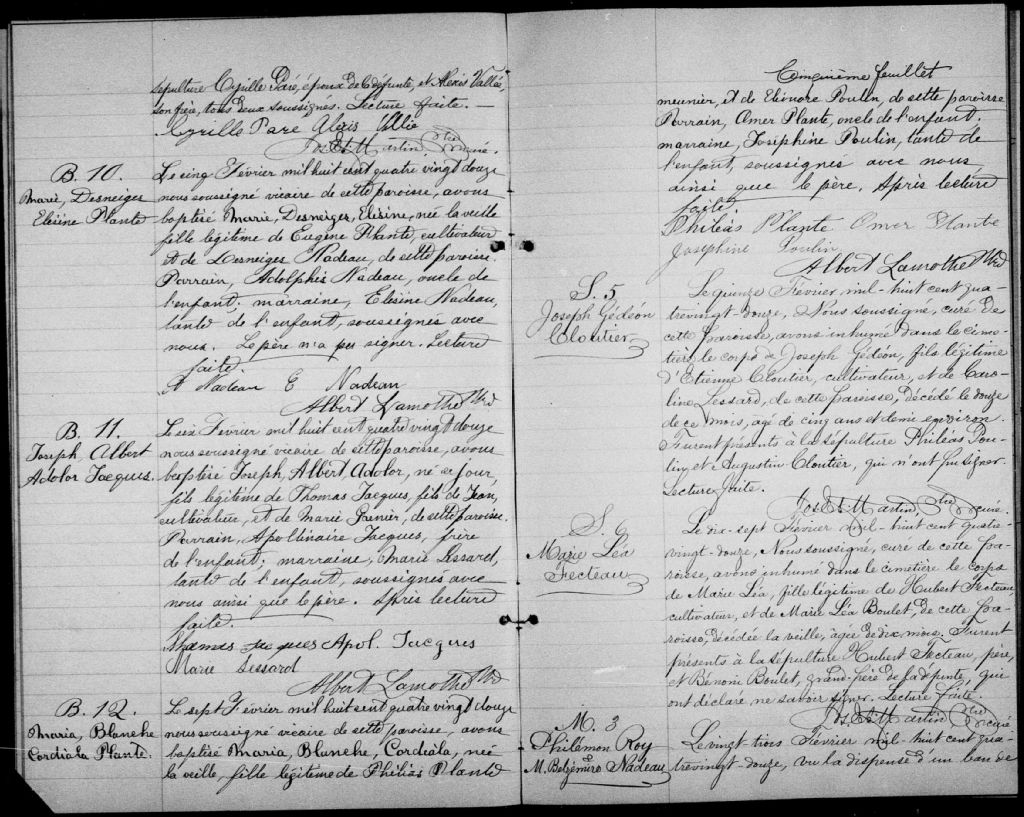 sépulture Cyrille Paré, époux de la défunte, et Alexis Vallée,
son frère, tous deux soussignés. Lecture faite. —
Cyrille Paré Alexis Vallée
Jos. Et. Martin, Ptre curé.
B. 10.
Marie, Desneiges
Elésine Plante
Le cinq Février mil huit cent quatre vingt douze
nous soussigné vicaire de cette paroisse, avons
baptisé Marie, Desneiges, Elésine, née la veille
fille légitime de Eugène Plante, cultivateur
et de Desneiges Nadeau, de cette paroisse.
Parrain, Adolphis Nadeau, oncle de
l'enfant; marraine, Elésine Nadeau,
tante de l'enfant, soussignés avec
nous. Le père n'a pu signer. Lecture
faite.
A Nadeau E Nadeau
Albert Lamothe Ptre Vic
B. 11.
Joseph, Albert
Adolor Jacques.
Le six Février mil huit cent quatre vingt douze
nous soussigné vicaire de cette paroisse, avons
baptisé Joseph, Albert, Adolor, né ce jour,
fils légitime de Thomas Jacques, fils de Jean,
cultivateur, et de Marie Grenier, de cette paroisse.
Parrain, Apollinaire Jacques, frère
de l'enfant; marraine, Marie Lessard,
tante de l'enfant, soussignés avec
nous ainsi que le père. Après lecture
faite.
Thomas Jacques Apol. Jacques
Marie Lessard
Albert Lamothe Ptre Vic
B. 12.
Maria, Blanche
Cordiala Plante.
Le sept Février mil huit cent quatre vingt douze
nous soussigné vicaire de cette paroisse, avons
baptisé Maria, Blanche, Cordiala, née
la veille, fille légitime de Philias Plante
Cinquième feuillet
meunier, et de Elénore Poulin, de cette paroisse
Parrain, Omer Plante, oncle de l'enfant.
marraine, Joséphine Poulin, tante de
l'enfant, soussignés avec nous
ainsi que le père. Après lecture
faite.
Philéas Plante Omer Plante
Josephine Poulin
Albert Lamothe Ptre Vic
S. 5
Joseph Gédéon
Cloutier
Le quinze Février mil-huit cent qua-
trevingt-douze, Nous soussigné, curé de
cette paroisse, avons inhumé dans le cime-
tière le corps de Joseph Gédéon, fils légitime
d'Etienne Cloutier, cultivateur, et de Caro-
line Lessard, de cette paroisse, décédé le douze
de ce mois, agé de cinq ans et demie environ.
Furent présents à la sépulture Philéas Pou-
lin, et Augustin Cloutier, qui n'ont pu signer.
Lecture faite.
Jos. Et. Martin, Ptre curé.
S. 6
Marie Léa
Fecteau
Le dix-sept Février mil-huit cent quatre-
vingt-douze, Nous soussigné, curé de cette pa-
roisse, avons inhumé dans le cimetière le corps
de Marie Léa, fille légitime de Hubert Fecteau,
cultivateur, et de Marie Léa Boulet, de cette pa-
roisse, décédée la veille, âgée de dix mois. Furent
présents à la sépulture Hubert Fecteau, père,
et Bénoni Boulet, grand-père de la défunte, qui
ont déclaré ne savoir signer. Lecture faite.
Jos. Et. Martin Ptre curé
M. 3
Philémon Roy
&
M. Belzémire Nadeau
Le vingt-trois Février mil-huit cent qua-
trevingt-douze, vu la dispense d'un ban de